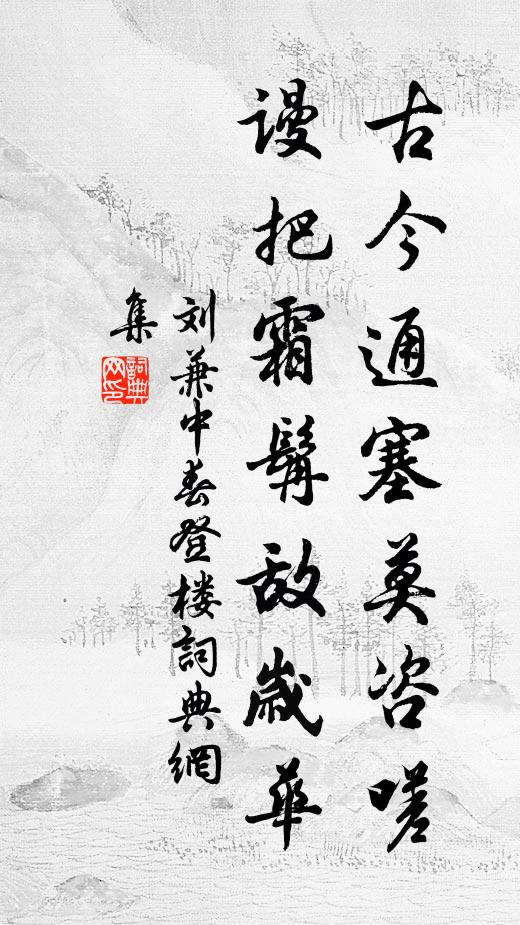 古今通塞莫咨嗟
谩把霜髯敌岁华
刘兼中春登楼詞典網
集
詞典
网印